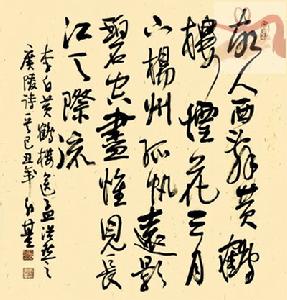 故人西辞黄鹤
楼烟花三月
下扬州孤帆远影
碧空尽惟见长
江天际流
李白黄鹤楼送孟浩然之
广陵诗 己丑年